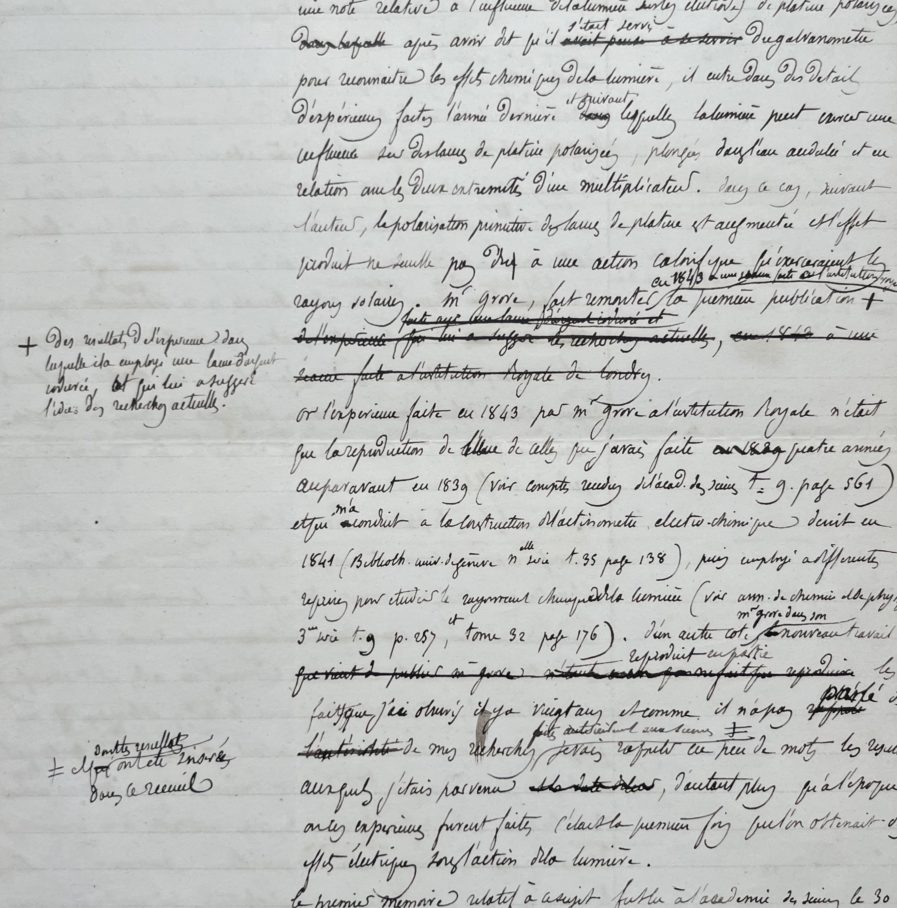 une note relative à l'influence de la lumière sur les électrodes de platine polarisées
dans laquelle après avoir dit qu'il s'était servi avait pensé à se servir du galvanomètre
pour reconnaitre les effets chimiques de la lumière, il entre dans des detail
d'expériences faites l'année dernière et suivant dans lesquelles la lumière peut exercer une
influence sur des lames de platine polarisées, plongés dans l'eau acidulée et en
relation avec les deux extremités d'un multiplicateur. dans ce cas, suivant
l'auteur, la polarisation primitive des lames de platine est augmentée et l'effet
produit ne semble pas dû à une action calorifique qu'exerceraient les
rayons solaires. Mr Grove, fait remonter la première publication +
en 1843 à une séance faite à l'institution roy
faite avec une lame d'argent iodurée et
de l'expérience qui lui a suggéré les recherches actuelles, en 1843 à une
séance faite a l'institution Royale de Londres.
+ Des resultats d'experience dans
laquelle il a employé une lame d'argent
iodurée, et qui lui a suggéré
l'idée des recherches actuelles.
or l'experience faite en 1843 par mr grove a l'institution Royale n'était
que la reproduction de l'une de celles que j'avais faite en 1839 quatre années
auparavant en 1839 (voir comptes rendus de l'acad. des sciences t. 9. page 561)
et qui m'a conduit à la construction de l'actinometre electro-chimique décrit en
1841 (Biblioth. univ. de genève nelle série t. 35 page 138), puis employé a différentes
reprises pour etudier le rayonnement chimique de la lumière (voir ann. de chimie et de phys
3me série t. 9 p. 257, et tome 32 page 176). D'un autre coté, mr grove dans son nouveau travail
reproduit en partie
que vient de publier mr grove les
faits que j'ai observés il y a vingt ans et comme il n'a pas parlé
l'antériorité de mes recherches faits antérieurement aux siennes ‡ je vais rappeler en peu de mots les resu
‡ dont les resultats
ont été insérés
dans ce recueil
auxquels j'étais parvenu, d'autant plus qu'à l'époque
ou les experiences furent faites c'était la premiere fois que l'on obtenait d
effets électriques sous l'action de la lumière.
le premier mémoire relatif à ce sujet fut lu à l'academie des sciences le 30